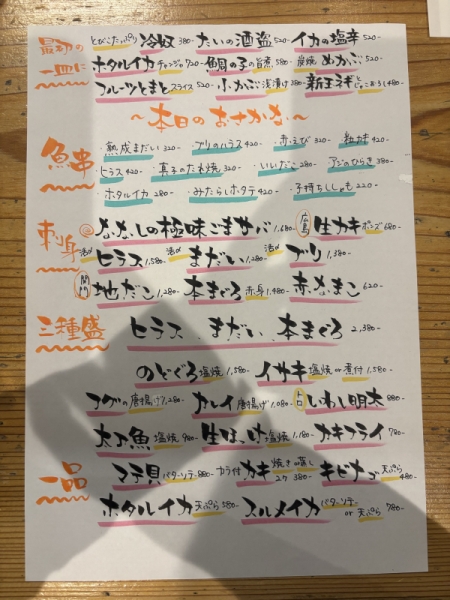 最初の一皿に
とびこたっぷり 冷奴 380- たいの酒盗 520- イカの塩辛 520-
ホタルイカ チャンジャ 420- 鯛の子の旨煮 580- 炭焼 めかぶ 520-
フルーツとまと スライス 520- 浅漬け 380- 新玉ネギ 480-
〜本日のおさかな〜
魚串
・熟成まだい 320- ・ブリのハラス 420- ・赤えび 320- ・粒かき 420-
・ヒラス 420- ・真子のたれ焼 320- ・いいだこ 280- ・アジのひらき 380-
・ホタルイカ 280- ・みたらしホタテ 420- ・子持ちししゃも 220-
刺身
ななしの極味ごまサバ 1,680- 広島 生カキ ポンズ 680-
活〆 ヒラス 1,580- 活〆 まだい 1,280- 活〆 ブリ 1,380-
関門 地だこ 1,280- 本まぐろ 赤身 1,480- 赤なまこ 620-
三種盛
ヒラス、まだい、本まぐろ 2,380-
一品
のどぐろ 塩焼 1,580- イサキ 塩焼 or 煮付 1,580-
フグの唐揚げ 1,280- カレイ 唐揚げ 1,080- いわし明太 880-
太刀魚 塩焼 980- 生ほっけ 塩焼 1,180- カキフライ 780-
マテ貝 バターソテー 880- カラ付カキ 焼き or 蒸し 2コ 380- キビナゴ 天ぷら 480-
ホタルイカ 天ぷら 580- スルメイカ バターソテー or 天ぷら 780-